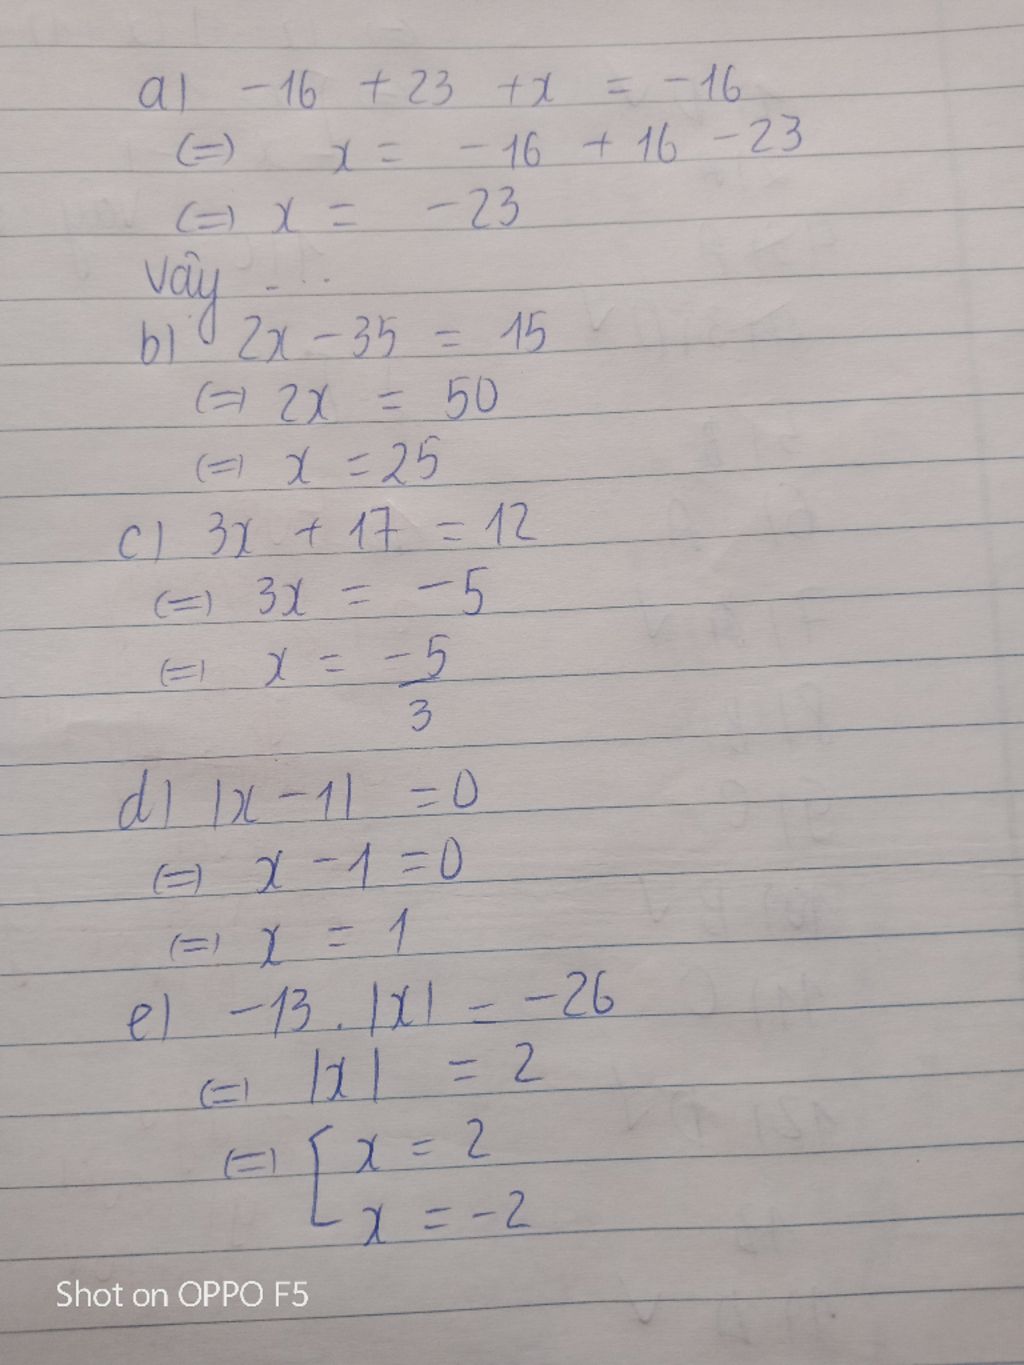 a) -16 + 23 + x = -16
(=) x = -16 + 16 - 23
(=) x = -23
Vậy ...
b) 2x - 35 = 15
(=) 2x = 50
(=) x = 25
c) 3x + 17 = 12
(=) 3x = -5
(=) x = -5
3
d) |x - 1| = 0
(=) x - 1 = 0
(=) x = 1
e) -13 . |x| = -26
(=) |x| = 2
(=) [ x = 2
x = -2
Shot on OPPO F5